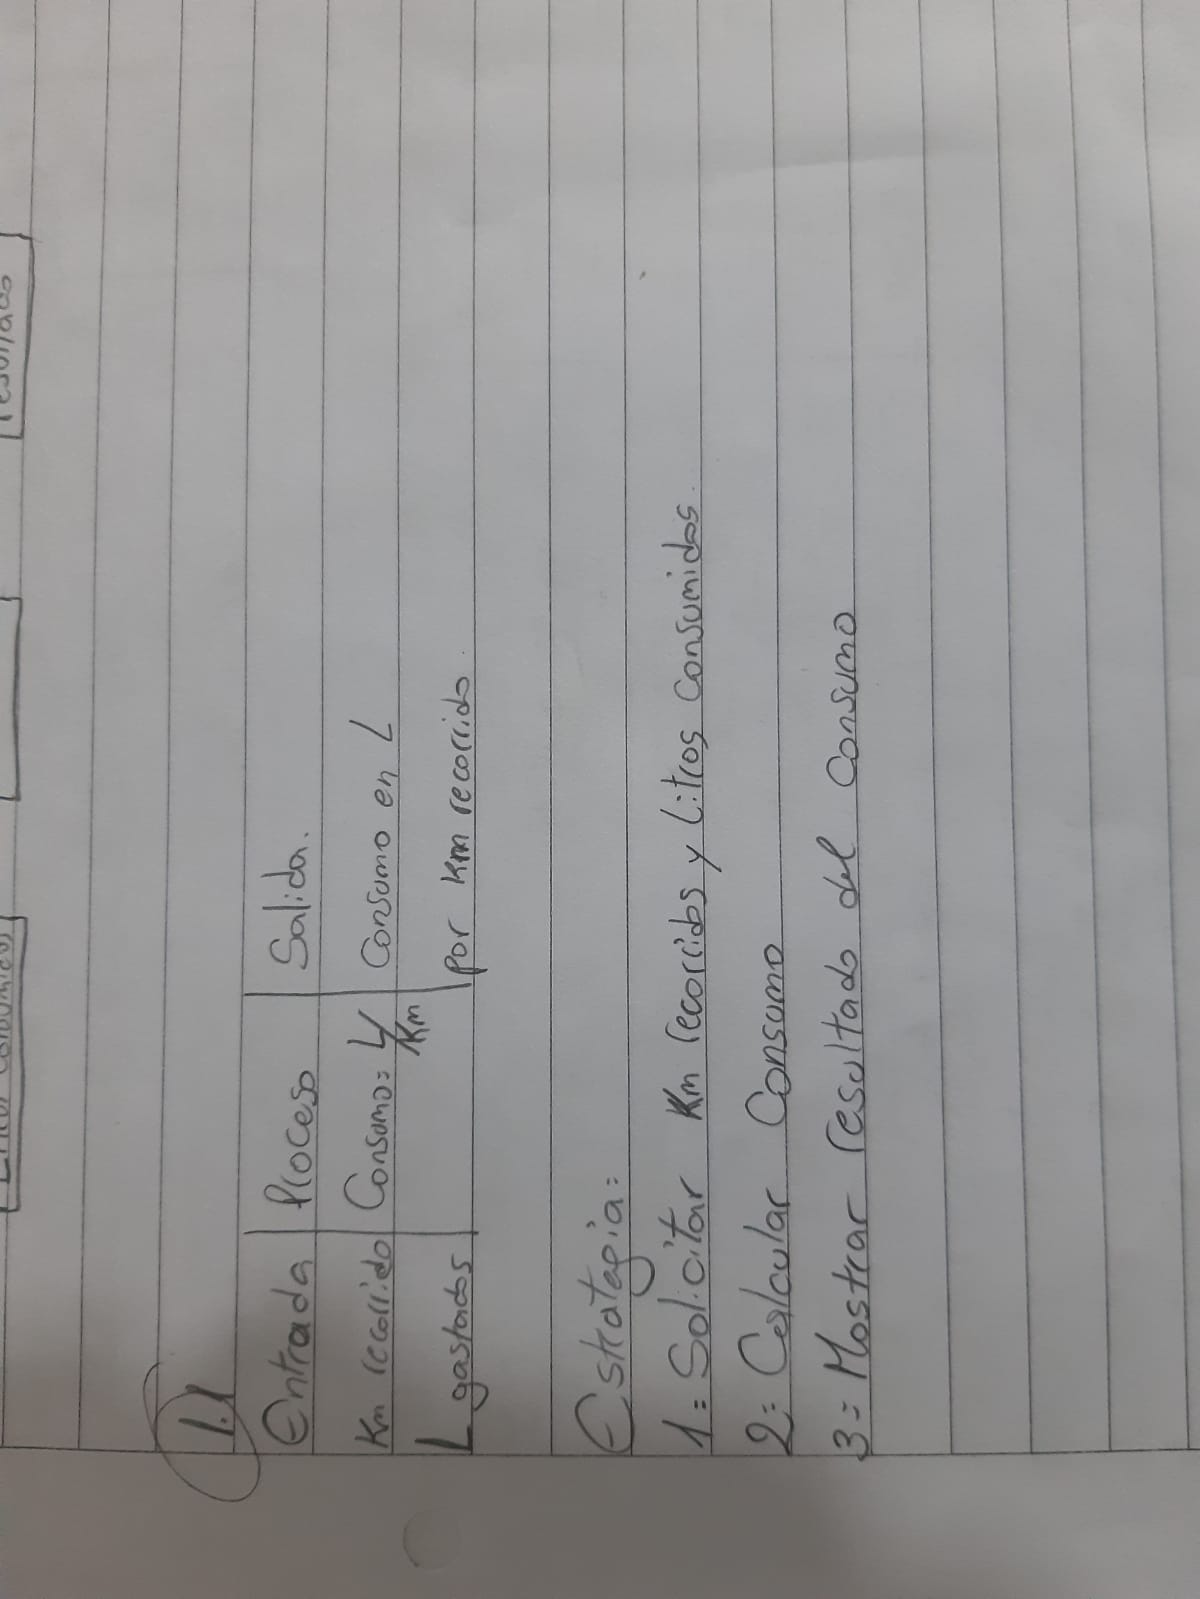 resultado
1.1
Entrada Proceso Salida.
Km recorrido Consumo= L/Km Consumo en L
L gastados por Km recorrido.
Estrategia=
1= Solicitar Km recorridos y Litros consumidos.
2= Calcular Consumo
3= Mostrar resultado del Consumo